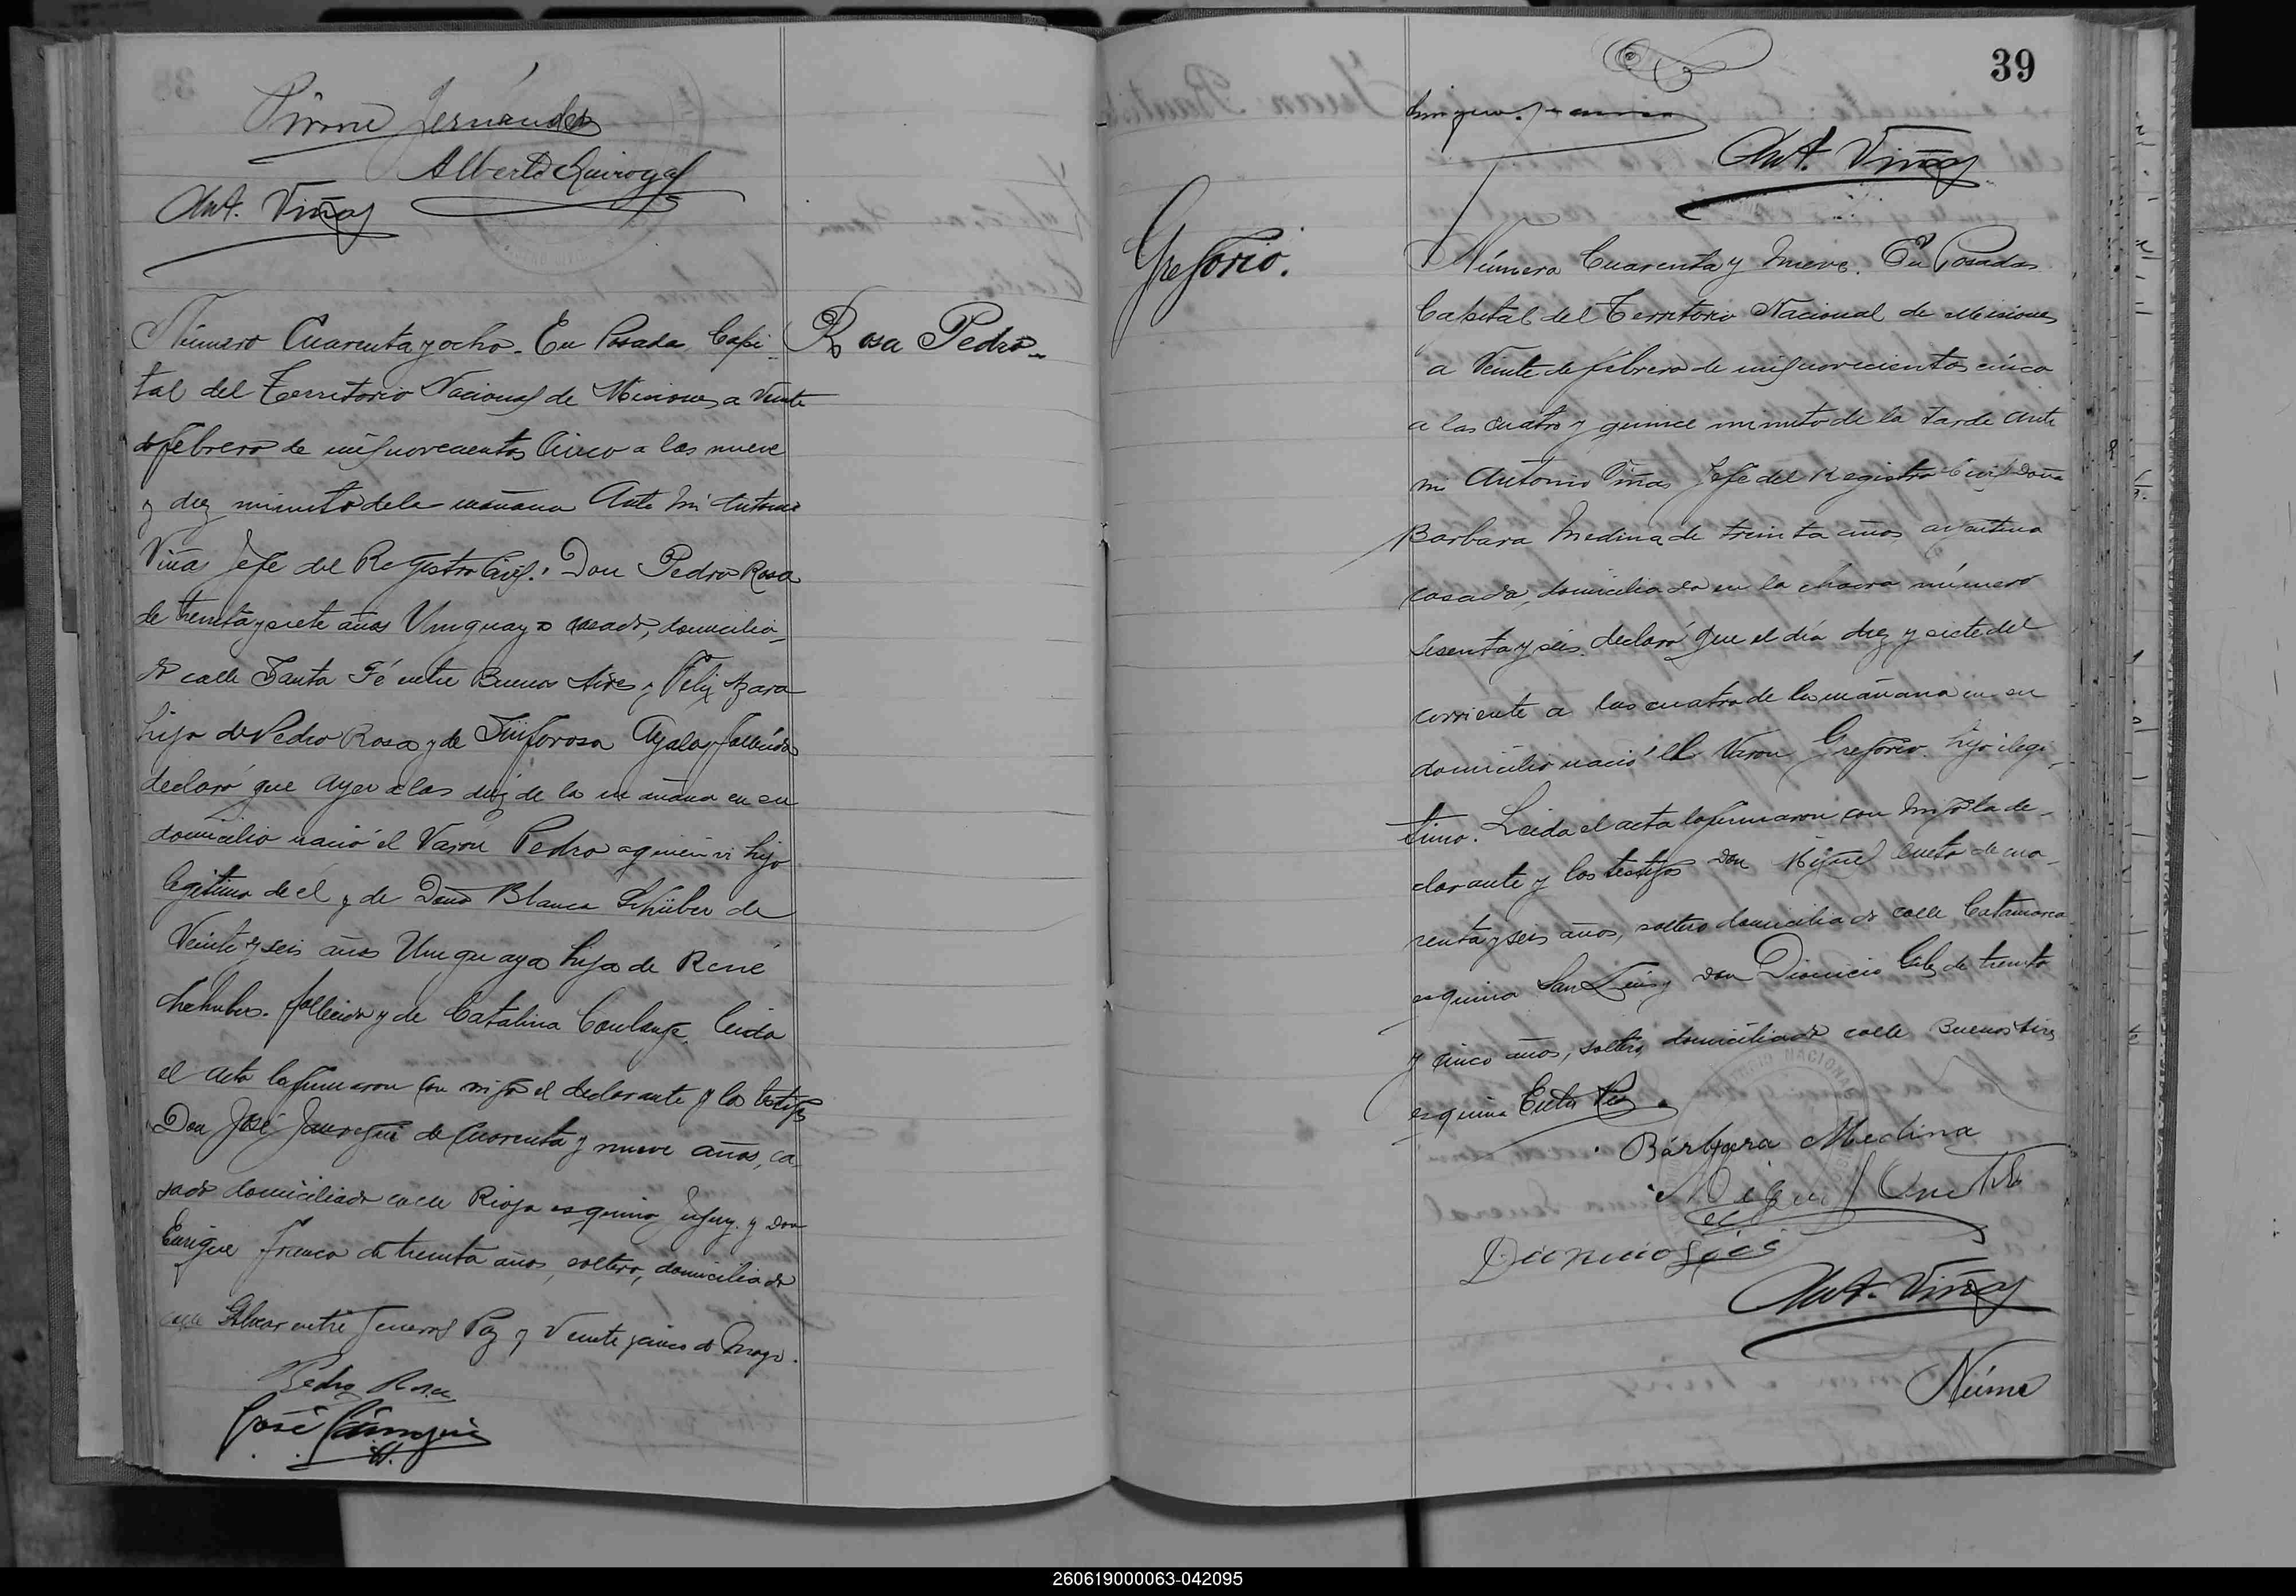 Primo Fernández
Alberto Quiroga
Ant. Viñas
Número Cuarenta y ocho. En Posadas Capi-
tal del Territorio Nacional de Misiones a Veinte
de febrero de mil novecientos Cinco a las nueve
y diez minutos de la mañana Ante mi Antonio
Viñas Jefe del Registro Civil: Don Pedro Rosa
de treinta y siete años Uruguayo casado, domicilia-
do calle Santa Fé entre Buenos Aires y Felix Azara
hijo de Pedro Rosa y de Sinforosa Ayala fallecidos
declaró que ayer a las diez de la mañana en su
domicilio nació el Varon Pedro a quien vi hijo
legitimo de él y de Doña Blanca Schüber de
Veinte y seis años Uruguaya hija de René
fallecido y de Catalina Leida
el acta la firmaron con migo el declarante y los testigos
Don José Jauregui de Cuarenta y nueve años, ca-
sado domiciliado calle Rioja esquina Jujuy y Don
Enrique Franco de treinta años, soltero, domiciliado
calle Bolivar entre General Paz y Veinte y cinco de Mayo.
Pedro Rosa
José Jáuregui
Rosa Pedro
39
Ant. Viñas
Gregorio.
Número Cuarenta y nueve. En Posadas
Capital del Territorio Nacional de Misiones
a Veinte de febrero de mil novecientos cinco
a las cuatro y quince minuto de la tarde ante
mi Antonio Viñas Jefe del Registro Civil Doña
Barbara Medina de treinta años, argentina
casada, domiciliada en la chacra número
sesenta y seis. declaró que el día diez y siete del
corriente a las cuatro de la mañana en su
domicilio nació el Varon Gregorio hijo ilegi-
timo. Leida el acta la firmaron con migo la de-
clarante y los testigos Don Miguel Cueto de cua-
renta y seis años, soltero domiciliado calle Catamarca
esquina San Luis y don Dionicio de treinta
y cinco años, soltero, domiciliado calle Buenos Aires
esquina Entre Rios.
Bárbara Medina
Miguel Cueto
Ant. Viñas
Núme
260619000063-042095